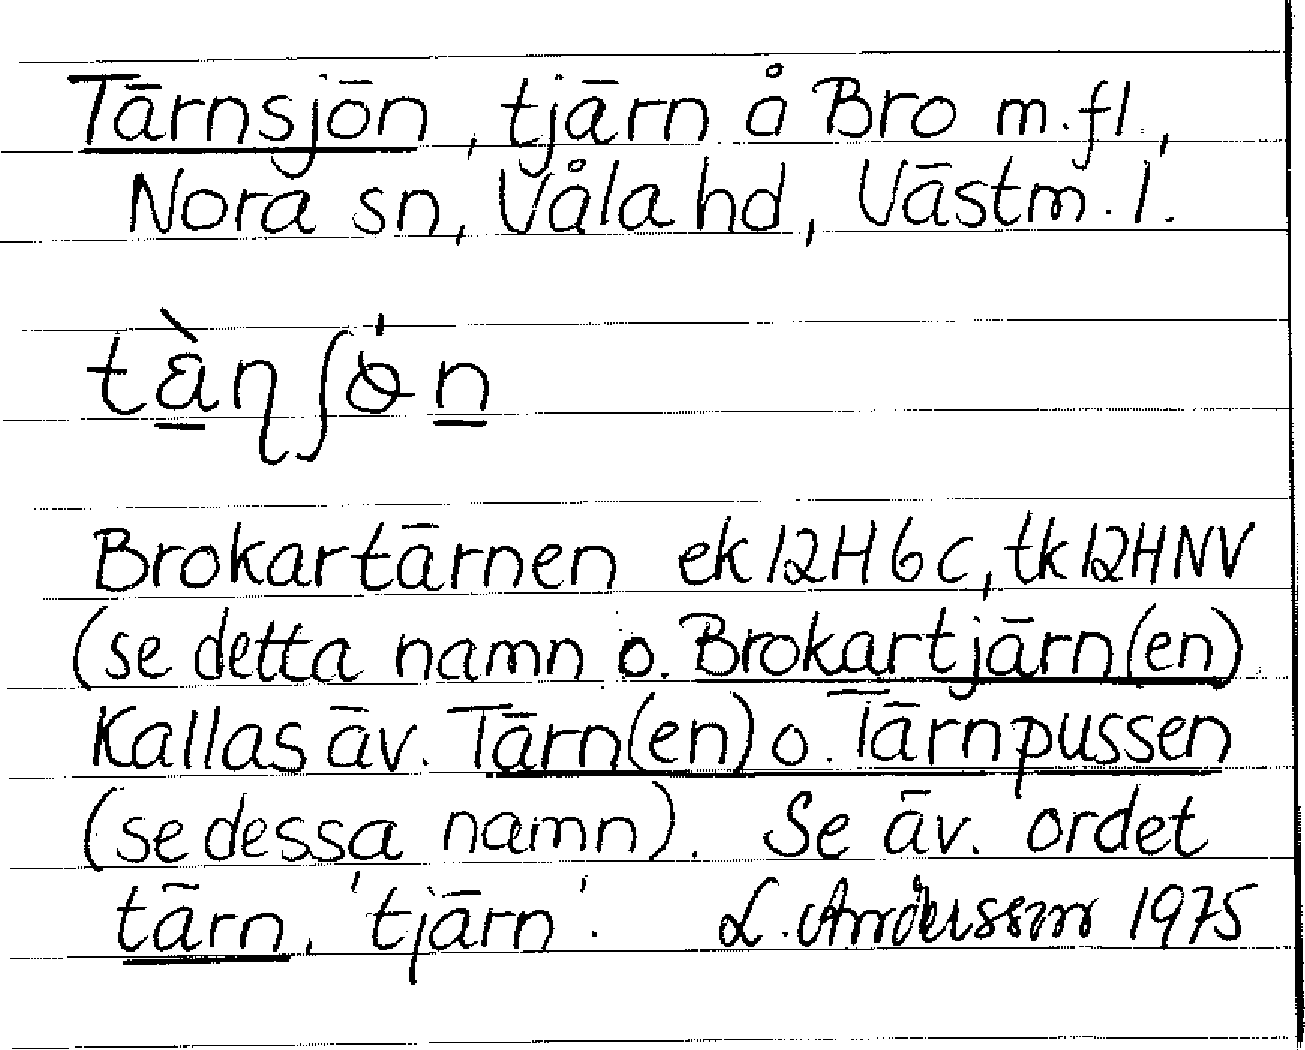 Tärnsjön, tjärn å Bro m.fl.,
Nora sn, Våla hd, Västm. l.
Brokartärnen ek 12H6c, tk 12HNV
(se detta namn o. Brokartjärn(en)
Kallas äv. Tärn(en) o. Tärnpussen
(se dessa namn). Se äv. ordet
tärn, 'tjärn'. L. Andersson 1975